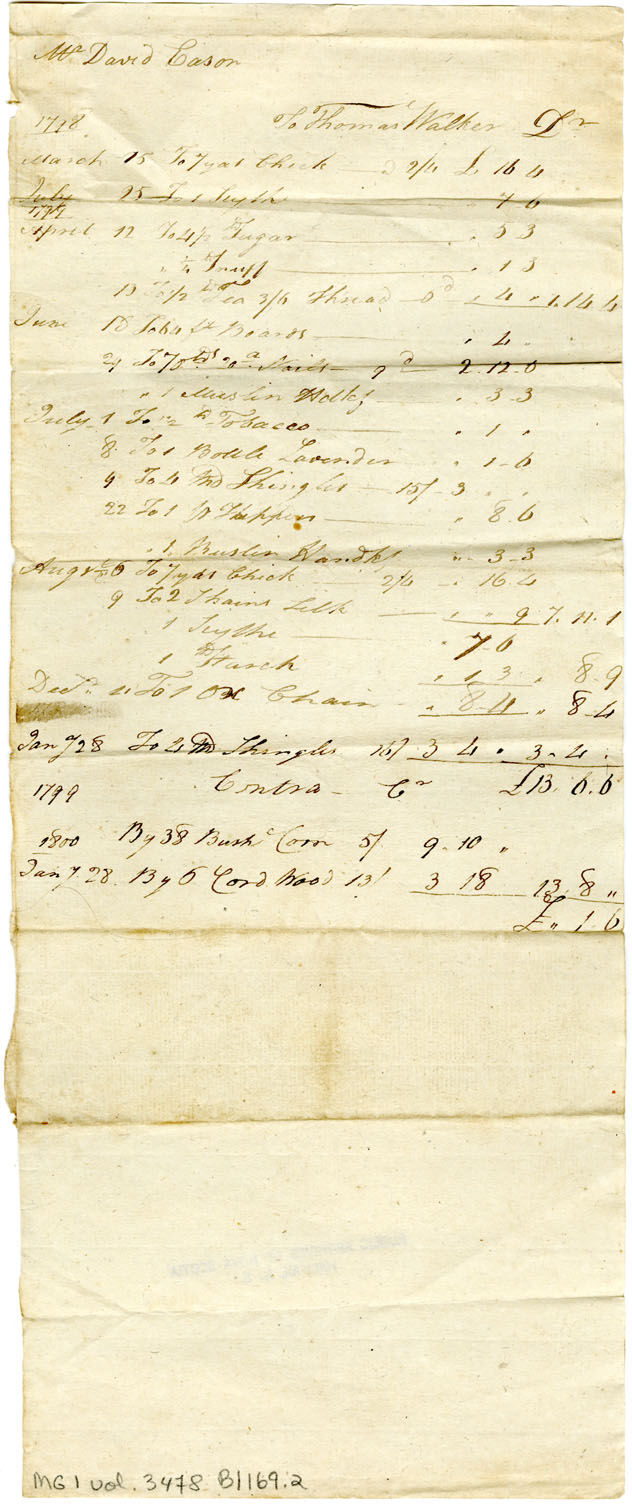 Mr David Eason
1798 To Thomas Walker Dr
March 15 To 7 yds Check 2/4 £ 16 4
July 25 To 1 Scythe 7 6
1799
April 12 To 4/2 Sugar " 5 3
" 1/4 Snuff " 1 3
13 To 1/2 Tea 3/6 Thread 6d " 4 " 1.14 4
June 18 To 64 ft Boards " 4 "
24 To 70 Nails 9d 2.12.6
" 1 Muslin Hdkf " 3-3
July 1 To 1/2 Tobacco " 1 "
8 To 1 Bottle Lavender " 1-6
9 To 4 Md Shingles 15/- 3 " "
22 To 1 pr " 8.6
" 1 Muslin Handkf " 3-3
Augt 6 To 7 yds Check 2/4 " 16.4
9 To 2 Skains Silk " " 9 7.11.1
1 Scythe " 7-6
1 Starch " 1 3 " 8-9
Decr 11 To 1 Ox Chain " 8-4 " 8-4
Jany 28 To 4 Md Shingles 16/ 3 4 " 3-4.
1799 Contra - Cr £13.6.6
1800 By 38 Bushl Corn 5/ 9.10 "
Jany 28. By 6 Cord Wood 13/ 3 18 13.8 "
£ " 1-6
MG 1 vol. 3478 B/169.2